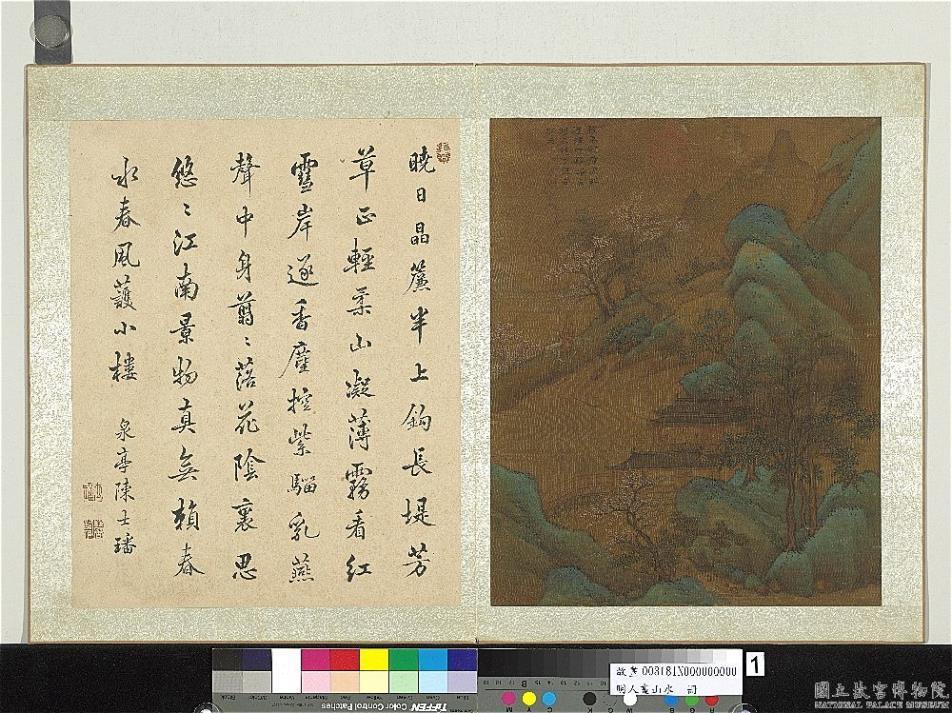 曉日晶簾半上鈎長堤芳
草正輕柔山凝薄霧看紅
靄岸逐香塵控紫騮乳燕
聲中身翦〻落花陰裏思
悠〻江南景物真無賴春
水春風護小樓 泉亭陳士璠
TIFFEN Color Control Patches
M Y C K W B G R
故畫003181N000000000
明人畫山水
1
國立故宮博物院
NATIONAL PALACE MUSEUM